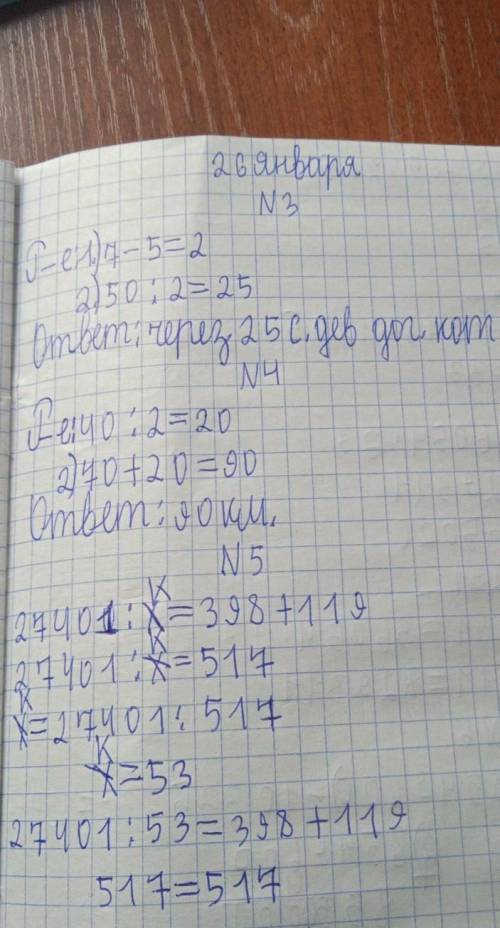 26 января
N3
Р-е:1)7-5=2
2)50:2=25
Ответ: через 25 с. дев дог. кот
N4
Р-е:40:2=20
2)70+20=90
Ответ: 90 км.
N5
27401:к=398+119
27401:к=517
к=27401:517
к=53
27401:53=398+119
517=517